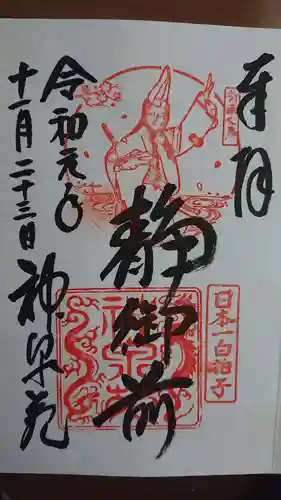 奉拝
日本一白拍子
静御前
令和元年
十一月二十三日
神泉苑